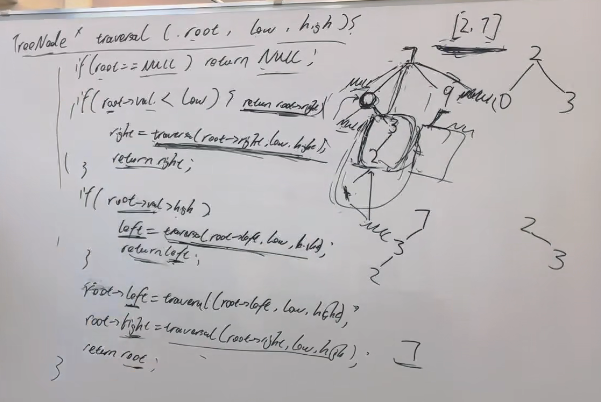 TreeNode* traversal (root, low, high){
if(root==NULL) return NULL;
if(root->val < low) { return root->right
right = traversal(root->right, low, high);
return right;
}
if(root->val>high)
left = traversal(root->left, low, high);
return left;
}
root->left = traversal(root->left, low, high);
root->right = traversal(root->right, low, high);
return root;
}
[2,7]
7
9
3
2
NULL
7
3
2
2
0
3
2
3